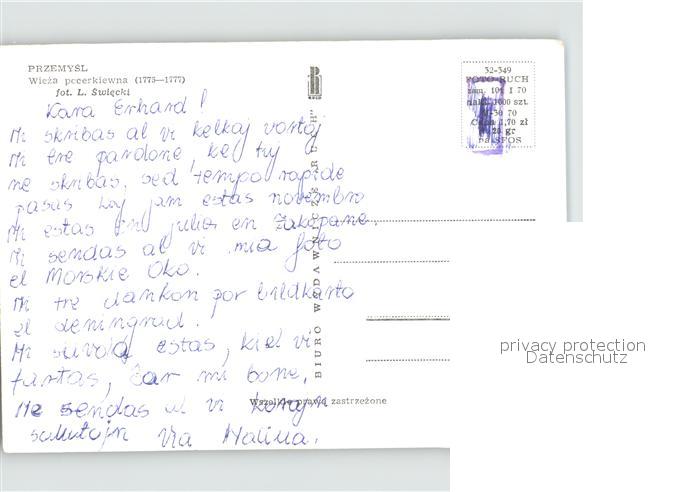 PRZEMYŚL
Wieża pocerkiewna (1775—1777)
fot. L. Święcki
Kara Erhard!
Mi skribas al vi kelkaj vortoj
Mi tre pardone, ke tuj
ne skribas, sed tempo rapide
pasas kaj jam estas novembro
Mi estas en julio en Zakopane.
Mi sendas al vi mia foto
el Morskie Oko.
Mi tre dankon por bildkarto
el Leningrad.
Mi estas, kiel vi
fartas, ĉar mi bone.
Mi sendas al vi korajn
salutojn Via Halina.
BIURO WYDAWNICZE „RUCH"
RUCH
32-349
FOTO-RUCH
zam. 104 I 70
nakł. 1000 szt.
70
Cena 1,70 zł
20 gr
na SFOS
Wszelkie prawa zastrzeżone
privacy protection
Datenschutz